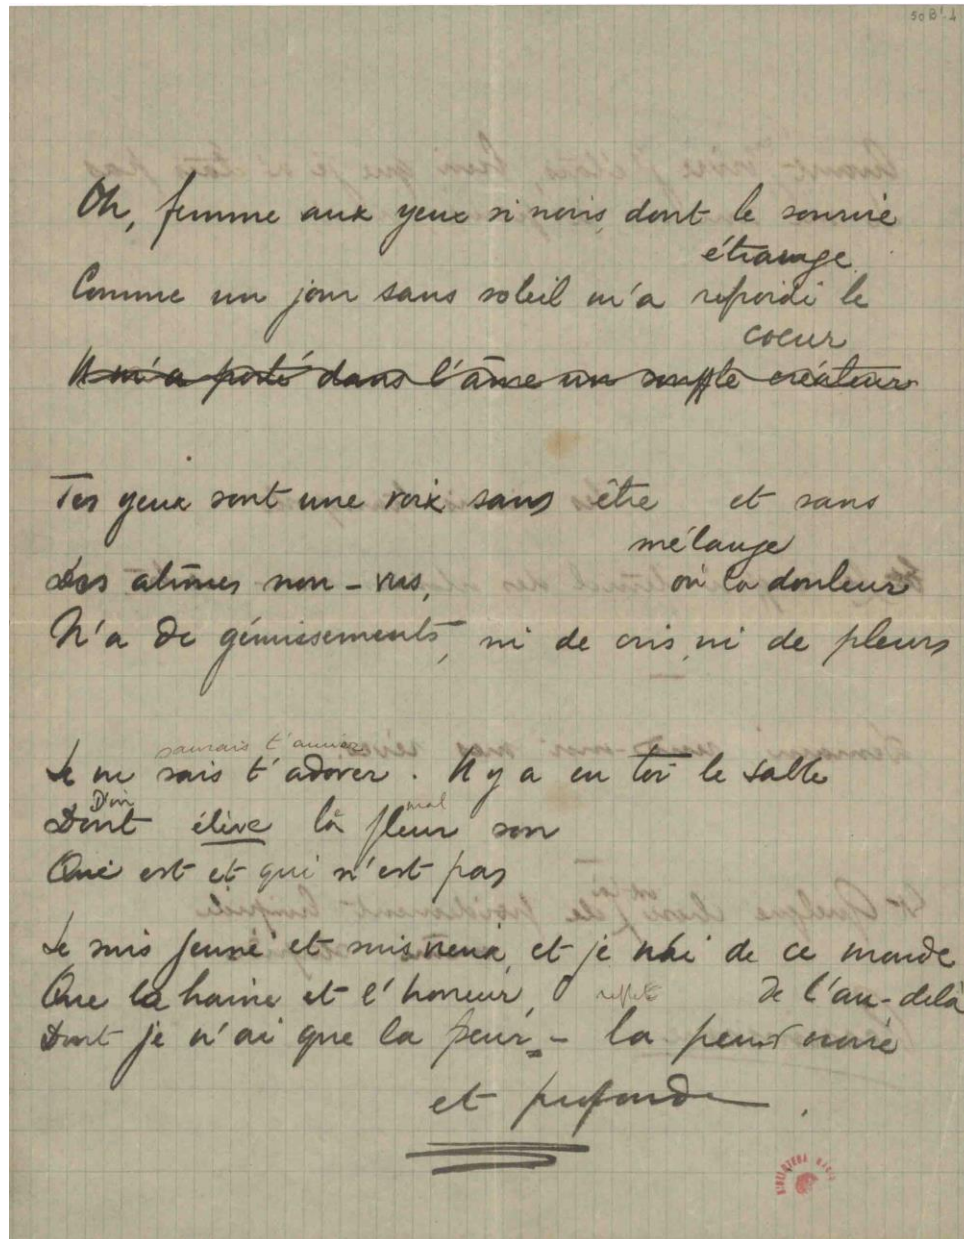 50B¹-1
Oh, femme aux yeux si noirs, dont le sourire
étrange
Comme un jour sans soleil m'a refroidi le
coeur
Il m'a porté dans l'âme un souffle créateur
Tes yeux sont une voix sans être et sans
mélange
Des abîmes non-vus, où la douleur
N'a de gémissements, ni de cris, ni de pleurs
saurais t'aimer
Je ne sais t'adorer. Il y a en toi le sable
D'où mal
Dont élève la fleur son
Qui est et qui n'est pas
Je suis jeune et suis vieux, et je n'ai de ce monde
Que la haine et l'horreur, reflet de l'au-delà
Dont je n'ai que la peur, - la peur noire
et profonde.